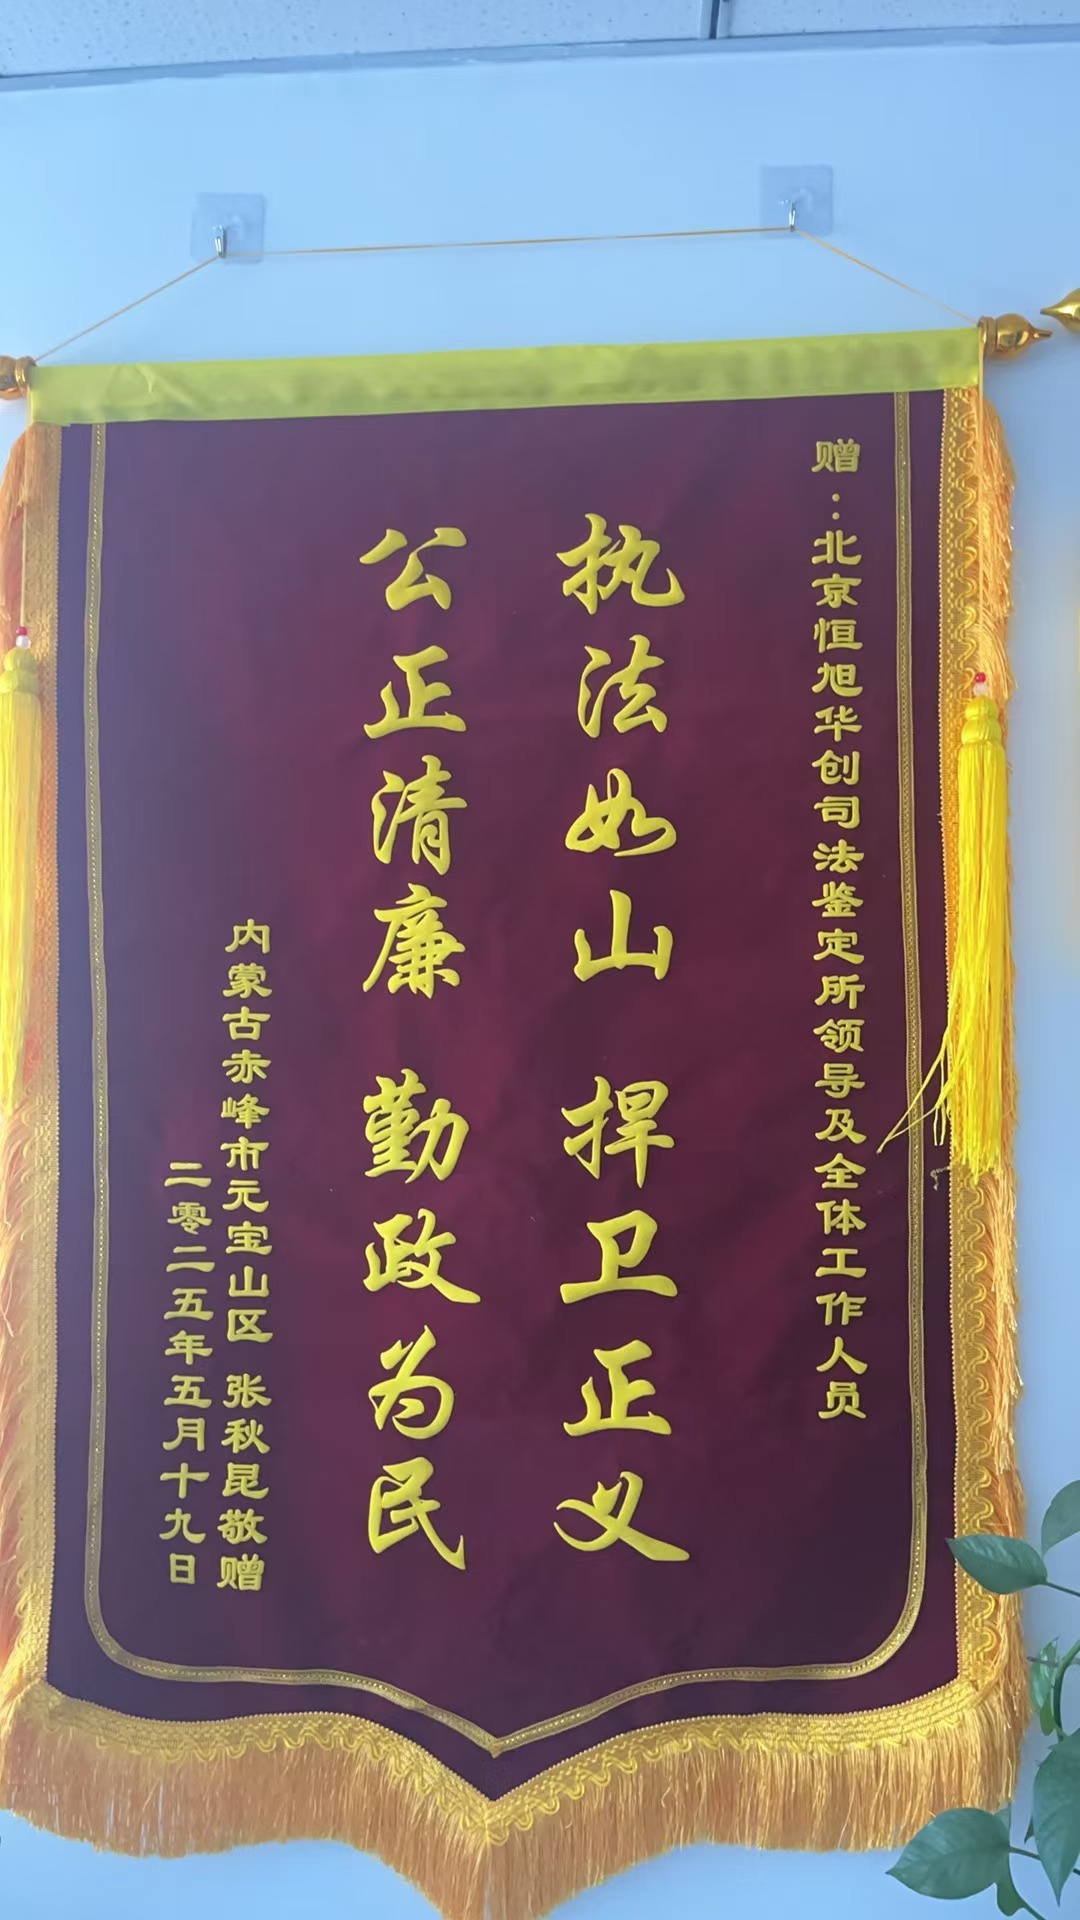 赠：北京恒旭华创司法鉴定所领导及全体工作人员
执法如山 捍卫正义
公正清廉 勤政为民
内蒙古赤峰市元宝山区 张秋昆敬赠
二零二五年五月十九日